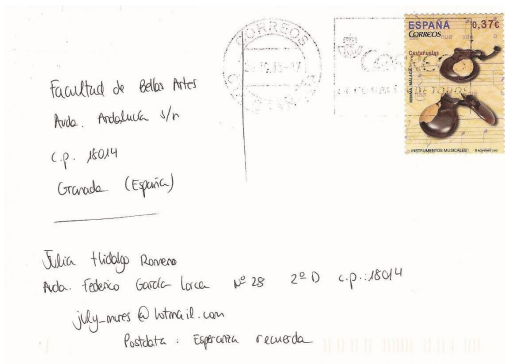 ESPAÑA 0,37€
CORREOS
Castañuelas
CORREOS
INSTRUMENTOS MUSICALES
Facultad de Bellas Artes
Avda. Andalucía s/n
c.p. 18014
Granada (España)
Julia Hidalgo Romero
Avda. Federico García Lorca Nº 28 2º D c.p.:18014
july_mures@hotmail.com
Postdata: Esperanza recuerda